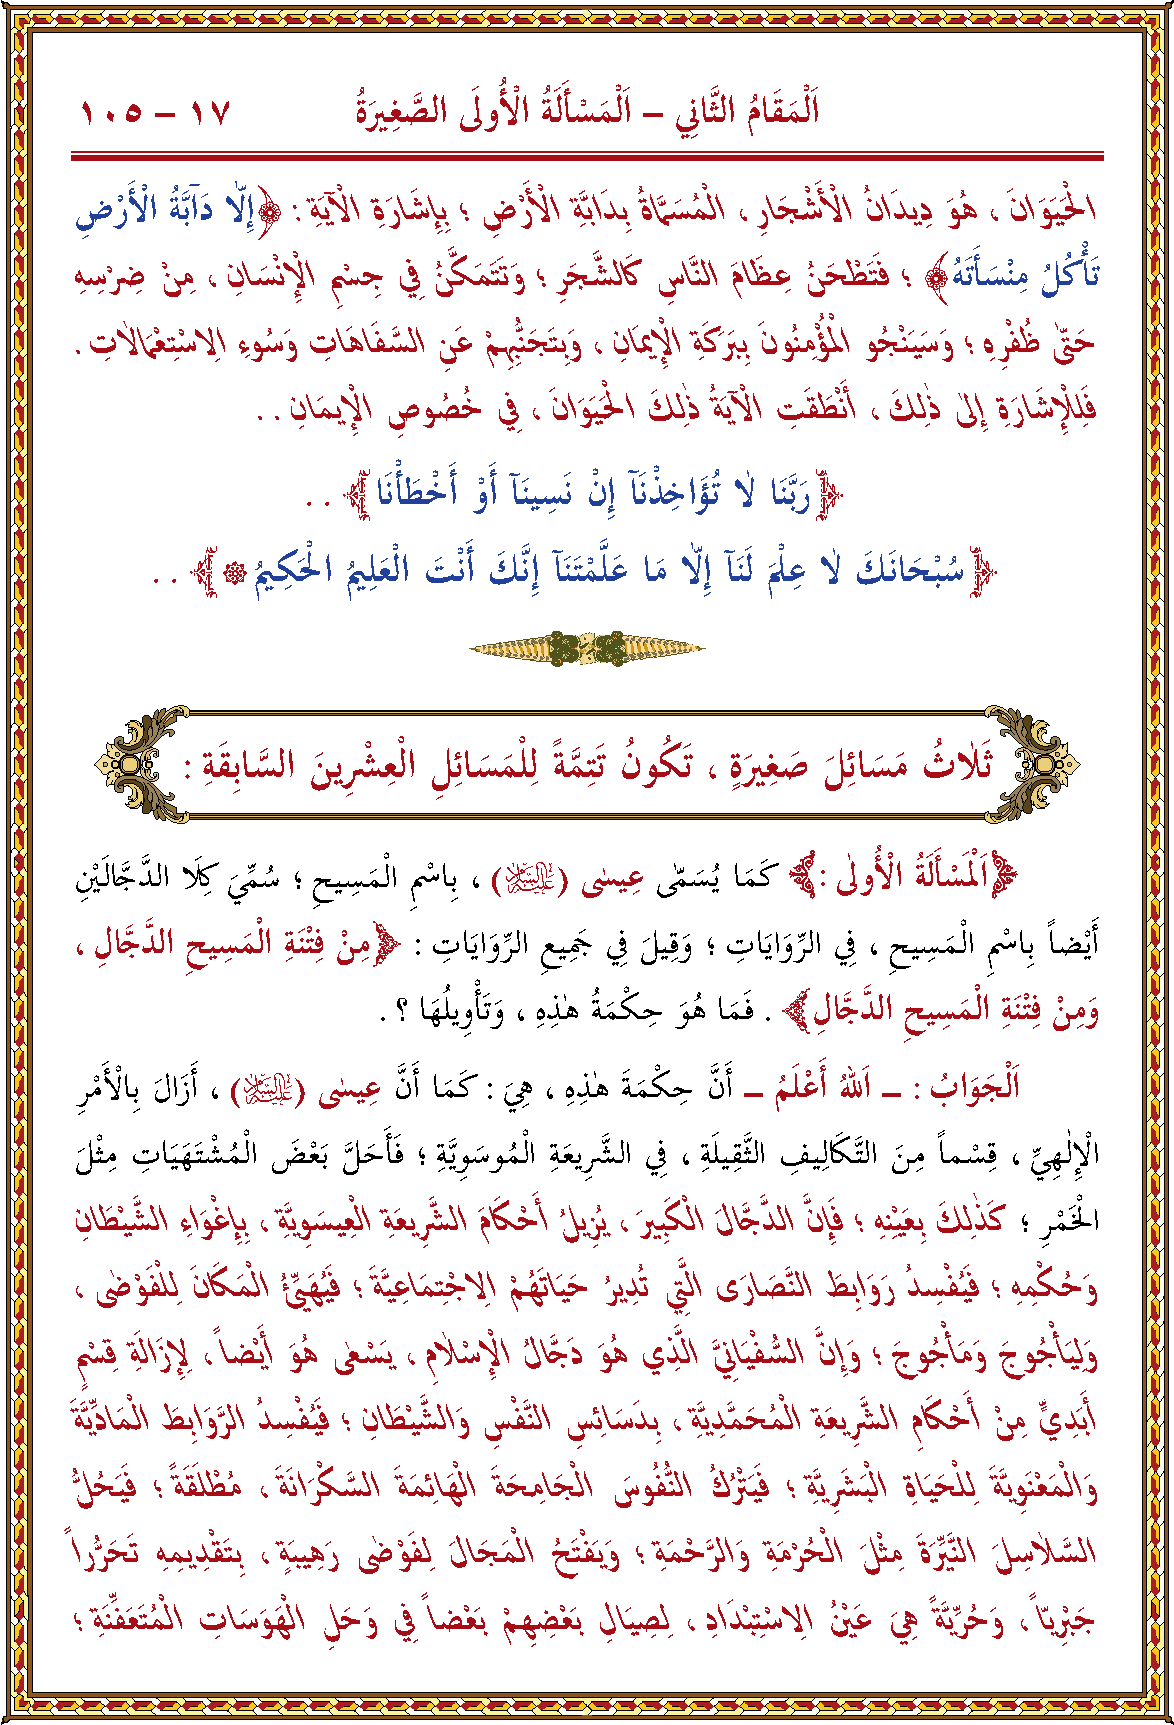 اَلْمَقَامُ الثَّانِي – اَلْمَسْأَلَةُ الْأُولَى الصَّغِيرَةُ ١٧ – ١٠٥
الْحَيَوَانَ ، هُوَ دِيدَانُ الْأَشْجَارِ ، الْمُسَمَّاةُ بِدَابَّةِ الْأَرْضِ ؛ بِإِشَارَةِ الْآيَةِ : ﴿إِلَّا دَآبَّةُ الْأَرْضِ
تَأْكُلُ مِنْسَأَتَهُ﴾ ؛ فَتَطْحَنُ عِظَامَ النَّاسِ كَالشَّجَرِ ؛ وَتَتَمَكَّنُ فِي جِسْمِ الْإِنْسَانِ ، مِنْ ضِرْسِهِ
حَتّٰى ظُفْرِهِ ؛ وَسَيَنْجُو الْمُؤْمِنُونَ بِبَرَكَةِ الْإِيمَانِ ، وَبِتَجَنُّبِهِمْ عَنِ السَّفَاهَاتِ وَسُوءِ الِاسْتِعْمَالَاتِ .
فَلِلْإِشَارَةِ إِلٰى ذٰلِكَ ، أَنْطَقَتِ الْآيَةُ ذٰلِكَ الْحَيَوَانَ ، فِي خُصُوصِ الْإِيمَانِ . .
﴿رَبَّنَا لَا تُؤَاخِذْنَآ إِنْ نَسِينَآ أَوْ أَخْطَأْنَا﴾ . .
﴿سُبْحَانَكَ لَا عِلْمَ لَنَآ إِلَّا مَا عَلَّمْتَنَآ إِنَّكَ أَنْتَ الْعَلِيمُ الْحَكِيمُ ۞﴾ . .
ثَلَاثُ مَسَائِلَ صَغِيرَةٍ ، تَكُونُ تَتِمَّةً لِلْمَسَائِلِ الْعِشْرِينَ السَّابِقَةِ :
﴿اَلْمَسْأَلَةُ الْأُولٰى :﴾ كَمَا يُسَمّٰى عِيسٰى (عَلَيْهِ السَّلَامُ) ، بِاسْمِ الْمَسِيحِ ؛ سُمِّيَ كِلَا الدَّجَّالَيْنِ
أَيْضاً بِاسْمِ الْمَسِيحِ ، فِي الرِّوَايَاتِ ؛ وَقِيلَ فِي جَمِيعِ الرِّوَايَاتِ : ﴿مِنْ فِتْنَةِ الْمَسِيحِ الدَّجَّالِ ،
وَمِنْ فِتْنَةِ الْمَسِيحِ الدَّجَّالِ﴾ . فَمَا هُوَ حِكْمَةُ هٰذِهِ ، وَتَأْوِيلُهَا ؟ .
اَلْجَوَابُ : – اَللّٰهُ أَعْلَمُ – أَنَّ حِكْمَةَ هٰذِهِ ، هِيَ : كَمَا أَنَّ عِيسٰى (عَلَيْهِ السَّلَامُ) ، أَزَالَ بِالْأَمْرِ
الْإِلٰهِيِّ ، قِسْماً مِنَ التَّكَالِيفِ الثَّقِيلَةِ ، فِي الشَّرِيعَةِ الْمُوسَوِيَّةِ ؛ فَأَحَلَّ بَعْضَ الْمُشْتَهَيَاتِ مِثْلَ
الْخَمْرِ ؛ كَذٰلِكَ بِعَيْنِهِ ؛ فَإِنَّ الدَّجَّالَ الْكَبِيرَ ، يُزِيلُ أَحْكَامَ الشَّرِيعَةِ الْعِيسَوِيَّةِ ، بِإِغْوَاءِ الشَّيْطَانِ
وَحُكْمِهِ ؛ فَيُفْسِدُ رَوَابِطَ النَّصَارَى الَّتِي تُدِيرُ حَيَاتَهُمْ الِاجْتِمَاعِيَّةَ ؛ فَيُهَيِّئُ الْمَكَانَ لِلْفَوْضٰى ،
وَلِيَأْجُوجَ وَمَأْجُوجَ ؛ وَإِنَّ السُّفْيَانِيَّ الَّذِي هُوَ دَجَّالُ الْإِسْلَامِ ، يَسْعٰى هُوَ أَيْضاً ، لِإِزَالَةِ قِسْمٍ
أَبَدِيٍّ مِنْ أَحْكَامِ الشَّرِيعَةِ الْمُحَمَّدِيَّةِ ، بِدَسَائِسِ النَّفْسِ وَالشَّيْطَانِ ؛ فَيُفْسِدُ الرَّوَابِطَ الْمَادِّيَّةَ
وَالْمَعْنَوِيَّةَ لِلْحَيَاةِ الْبَشَرِيَّةِ ؛ فَيَتْرُكُ النُّفُوسَ الْجَامِحَةَ الْهَائِمَةَ السَّكْرَانَةَ ، مُطْلَقَةً ؛ فَيَحُلُّ
السَّلَاسِلَ النَّيِّرَةَ مِثْلَ الْحُرْمَةِ وَالرَّحْمَةِ ؛ وَيَفْتَحُ الْمَجَالَ لِفَوْضٰى رَهِيبَةٍ ، بِتَقْدِيمِهِ تَحَرُّراً
جَبْرِيّاً ، وَحُرِّيَّةً هِيَ عَيْنُ الِاسْتِبْدَادِ ، لِصِيَالِ بَعْضِهِمْ بَعْضاً فِي وَحَلِ الْهَوَسَاتِ الْمُتَعَفِّنَةِ ؛